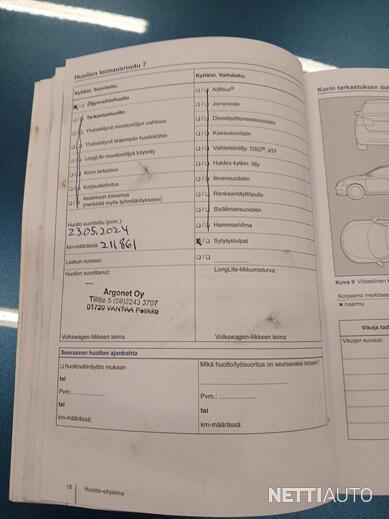 Huollon leimausruutu 7
Kyllä/ei. Suoritettu:
☐/☐ Öljynvaihtohuolto
☐/☐ Tarkastushuolto
☐/☐ Yhdistettynä moottoriöljyn vaihtoon
☐/☐ Yhdistettynä laajempiin huoltotöihin
☐/☐ LongLife-moottoriöljyä käytetty
☐/☐ Korin tarkastus
☐/☐ Korjauskehotus
☐/☐ Asiakkaan toivomus
(merkintä myös työmääräykseen)
Huolto suoritettu (pvm.):
23.05.2024
km-määrässä: 211861
Laskun numero:
Huollon suorittanut:
Argonet Oy
Tillitie 5 (09)2243 3707
01720 VANTAA Petikko
Volkswagen-liikkeen leima
Kyllä/ei. Vaihdettu:
☐/☐ AdBlue®
☐/☐ Jarruneste
☐/☐ Dieselpolttonestesuodatin
☐/☐ Kaasusuodatin
☐/☐ Vaihteistoöljy: DSG®, ATF
☐/☐ Haldex-kytkin: öljy
☐/☐ Ilmansuodatin
☐/☐ Renkaantäyttöpullo
☐/☐ Sisäilmansuodatin
☐/☐ Hammashihna
☒/☐ Sytytystulpat
☐/☐
LongLife-liikkumisturva:
Volkswagen-liikkeen leima
Seuraavan huollon ajankohta
☐ huoltovälinäytön mukaan
tai
Pvm.:
tai
km-määrässä:
Mikä huolto/työsuoritus on seuraavaksi tarpeen?
tai
Pvm.:
tai
km-määrässä:
18 Huolto-ohjelma
Korin tarkastuksen
Kuva 8 Viitteellinen
Korjaamo merkitsee
× naarmu
Vikoja
Vikojen kuvaus:
NETTIAUTO